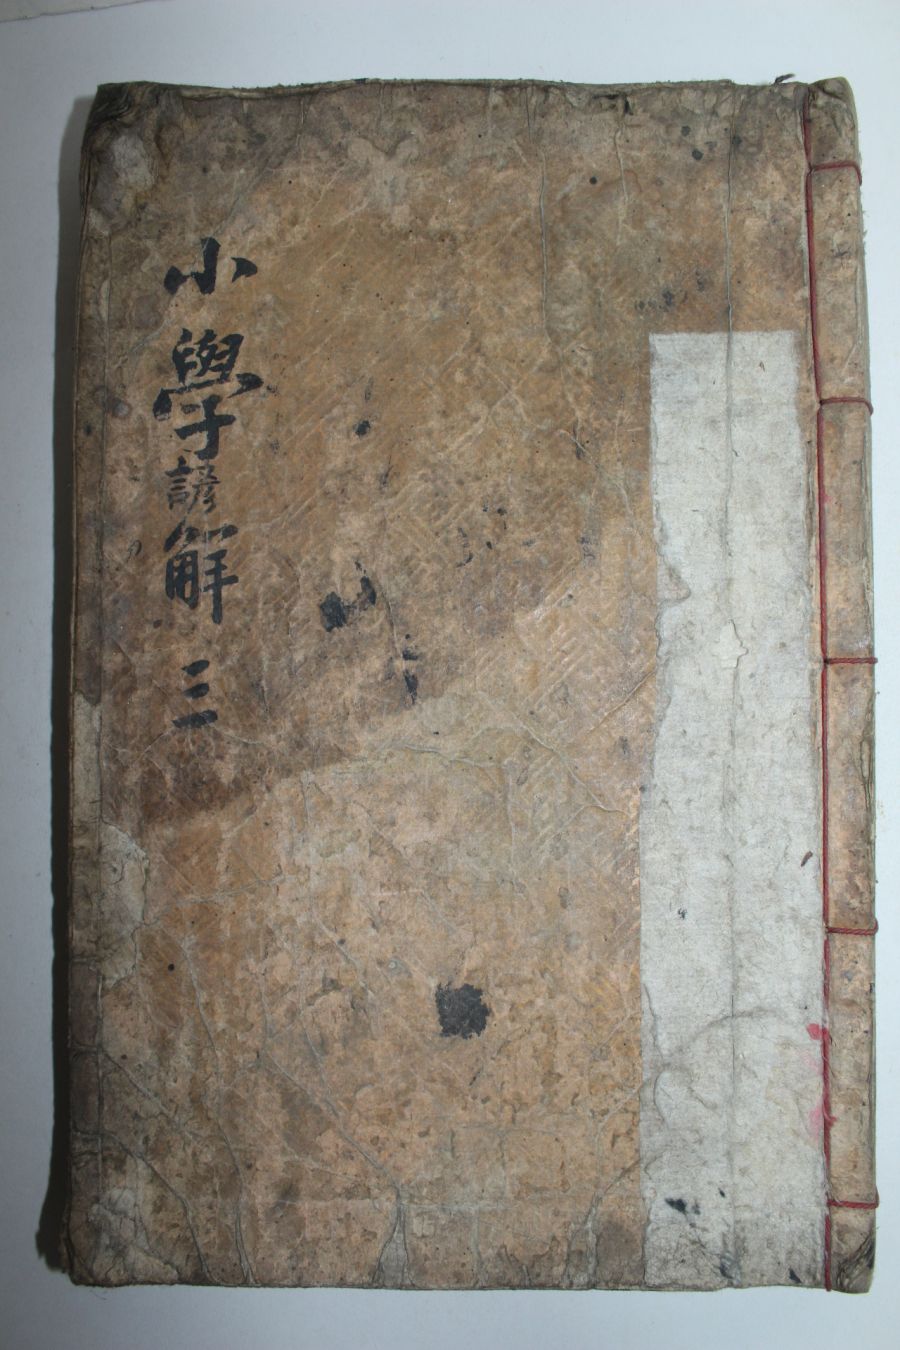 小學諺解 三